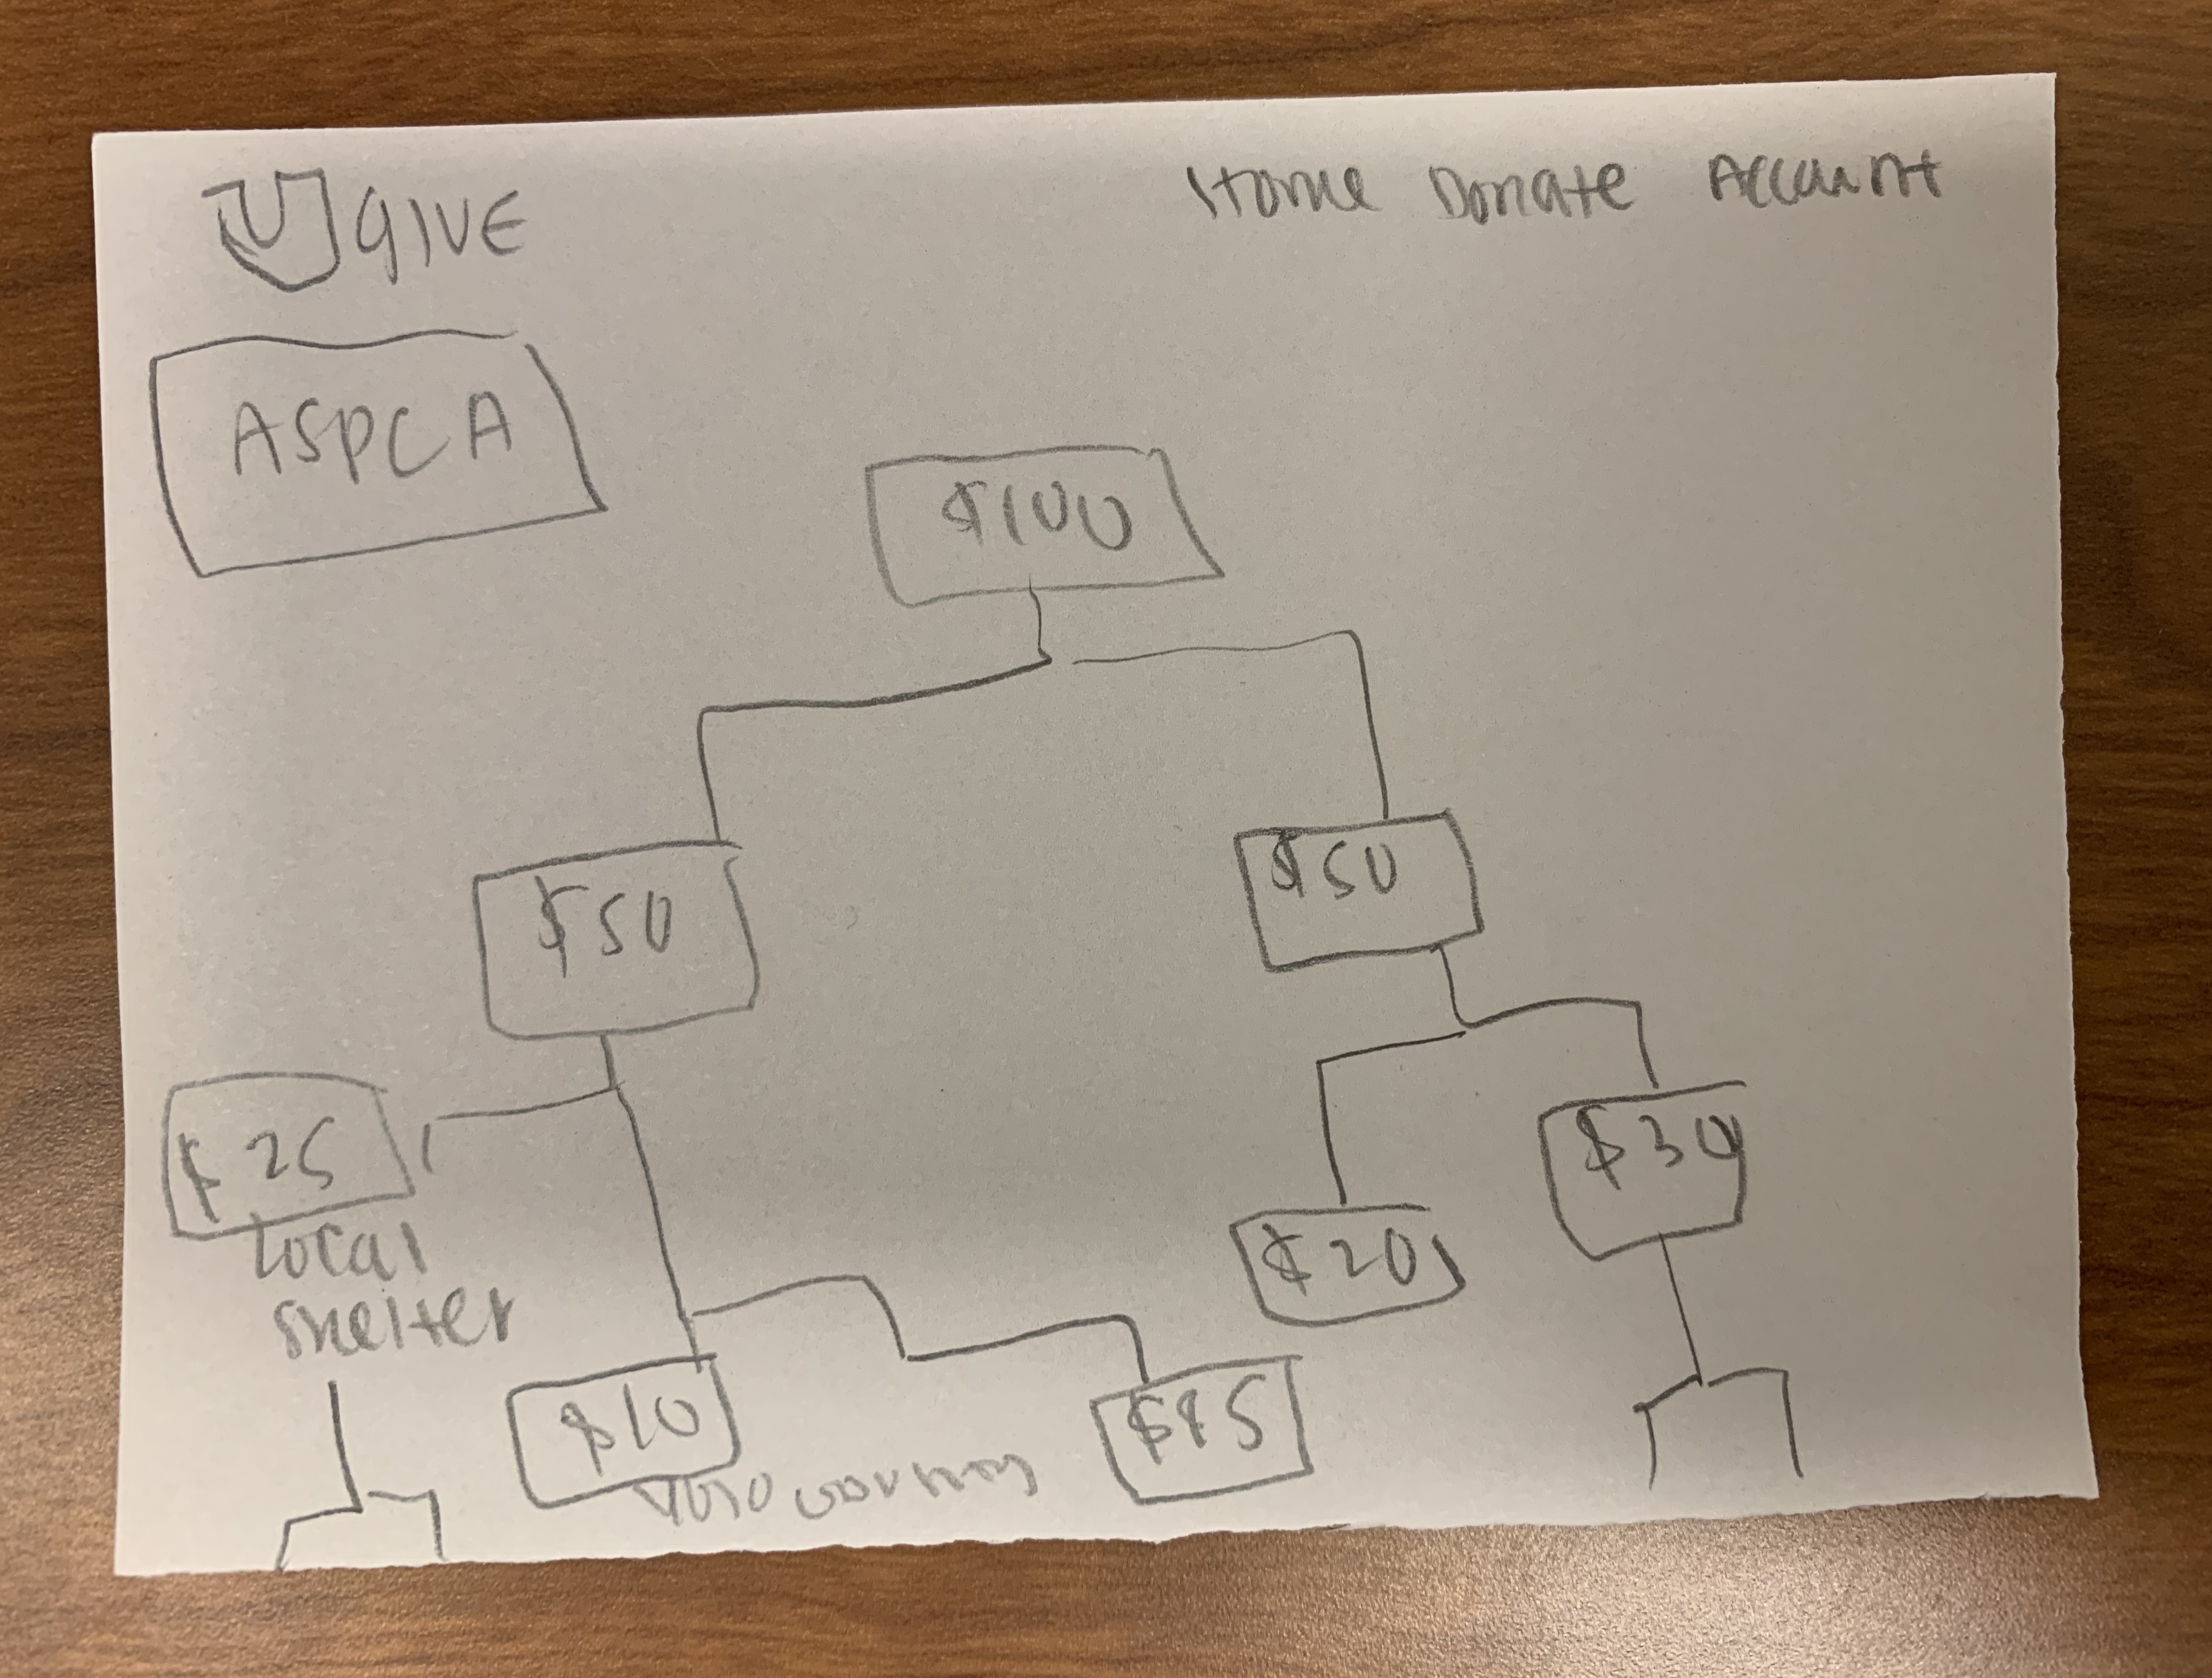 U GIVE
Home Donate Account
ASPCA
$100
$50
$50
$25
local
shelter
$30
$20
$10
$15